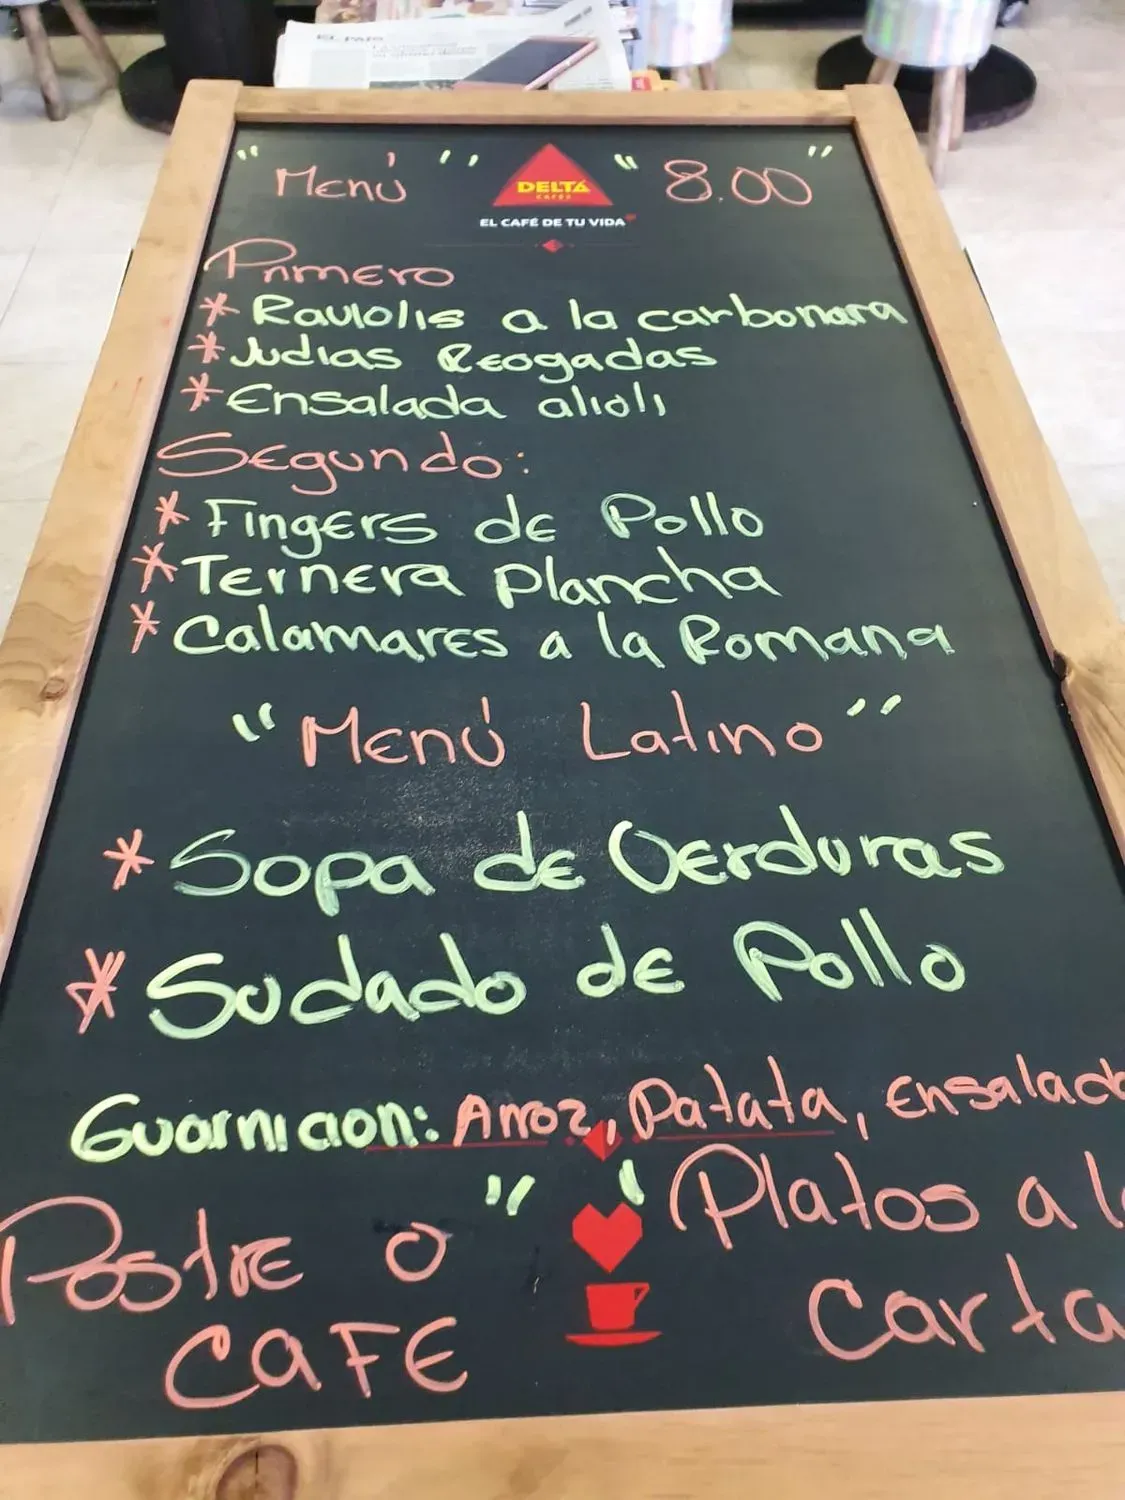 EL PAIS
"Menú" "8.00"
DELTA
cafés
EL CAFÉ DE TU VIDA
Primero
* Raviolis a la carbonara
* Judias Reogadas
* Ensalada alioli
Segundo:
* Fingers de Pollo
* Ternera plancha
* Calamares a la Romana
"Menú Latino"
* Sopa de Verduras
* Sudado de Pollo
Guarnicion: Arroz, Patata, Ensalada
Postre o "
CAFE
" Platos a la
Carta